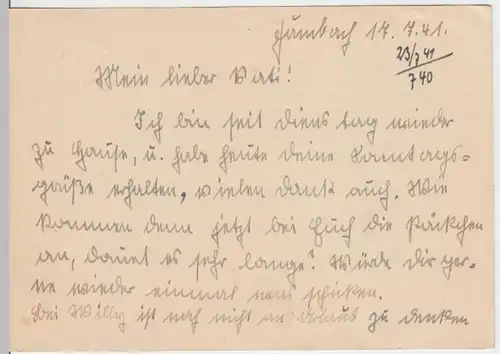 Hambach 17.7.41.
23/7 41
740
Mein lieber Vati!
Ich bin seit Diens tag wieder
zu Hause, u. habe heute deine Sonntags=
grüße erhalten, vielen dank auch. Wie
kommen denn jetzt bei Euch die Päckchen
an, dauert es sehr lange? Würde dir ger-
ne wieder einmal was schicken.
Bei Willy ist noch nicht an Urlaub zu denken